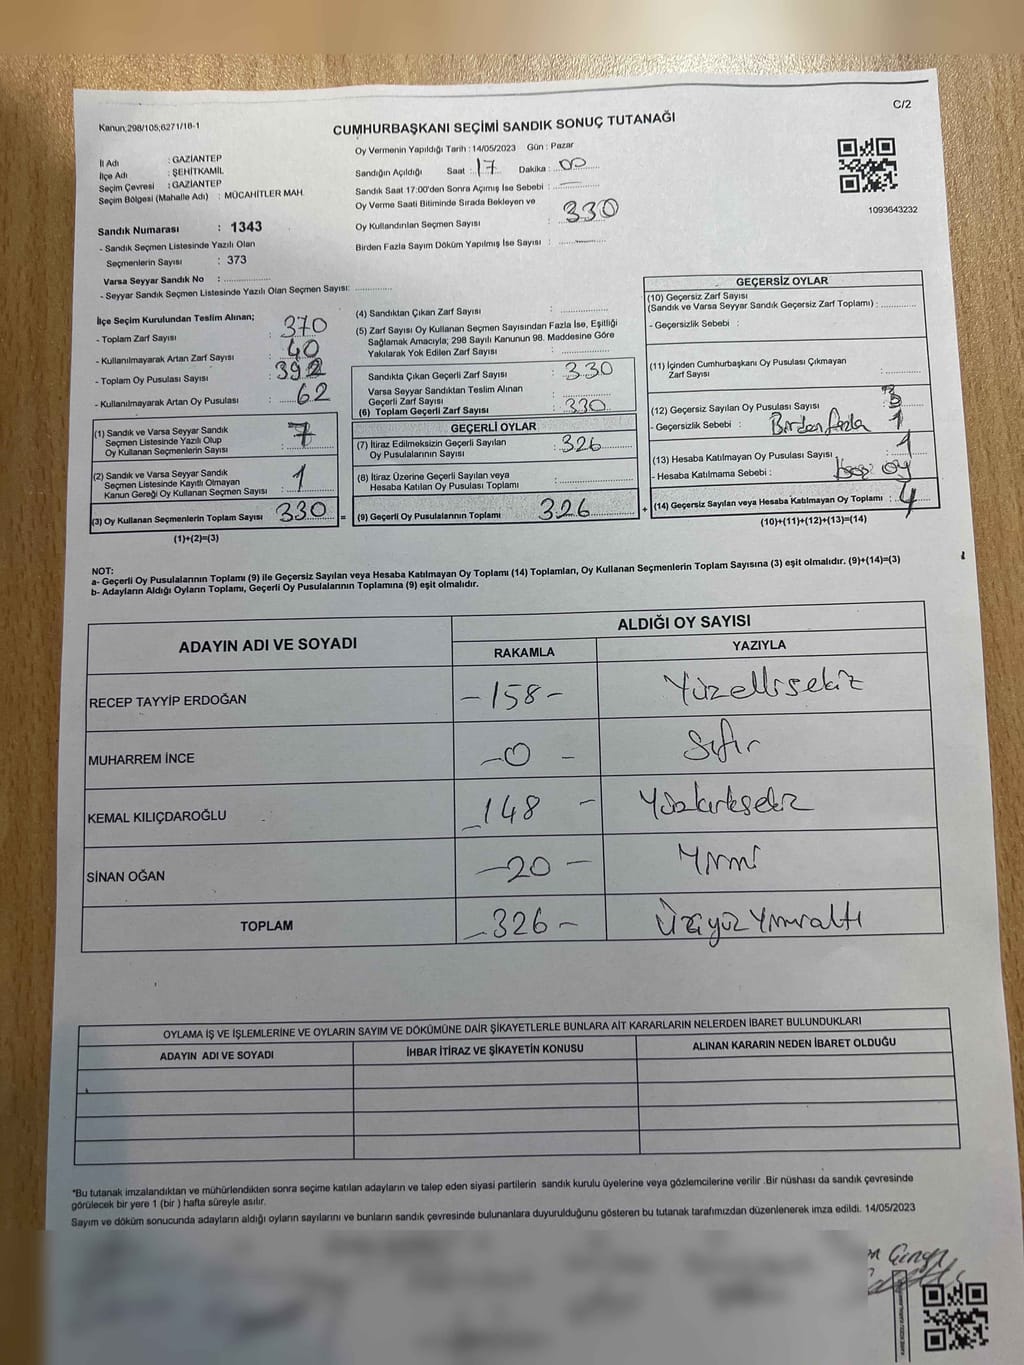 C/2
Kanun;298/105;6271/18-1
CUMHURBAŞKANI SEÇİMİ SANDIK SONUÇ TUTANAĞI
İl Adı : GAZİANTEP
İlçe Adı : ŞEHİTKAMİL
Seçim Çevresi : GAZİANTEP
Seçim Bölgesi (Mahalle Adı) : MÜCAHİTLER MAH.
Sandık Numarası : 1343
- Sandık Seçmen Listesinde Yazılı Olan
Seçmenlerin Sayısı : 373
Varsa Seyyar Sandık No :
- Seyyar Sandık Seçmen Listesinde Yazılı Olan Seçmen Sayısı:
Oy Vermenin Yapıldığı Tarih : 14/05/2023 Gün : Pazar
Sandığın Açıldığı Saat : 17 Dakika : 00
Sandık Saat 17:00'den Sonra Açımış İse Sebebi :
Oy Verme Saati Bitiminde Sırada Bekleyen ve
Oy Kullandırılan Seçmen Sayısı : 330
Birden Fazla Sayım Döküm Yapılmış İse Sayısı :
1093643232
İlçe Seçim Kurulundan Teslim Alınan;
- Toplam Zarf Sayısı : 370
- Kullanılmayarak Artan Zarf Sayısı : 40
- Toplam Oy Pusulası Sayısı : 392
- Kullanılmayarak Artan Oy Pusulası : 62
(1) Sandık ve Varsa Seyyar Sandık
Seçmen Listesinde Yazılı Olup
Oy Kullanan Seçmenlerin Sayısı : 7
(2) Sandık ve Varsa Seyyar Sandık
Seçmen Listesinde Kayıtlı Olmayan
Kanun Gereği Oy Kullanan Seçmen Sayısı : 1
(3) Oy Kullanan Seçmenlerin Toplam Sayısı : 330
(1)+(2)=(3)
(4) Sandıktan Çıkan Zarf Sayısı :
(5) Zarf Sayısı Oy Kullanan Seçmen Sayısından Fazla İse, Eşitliği
Sağlamak Amacıyla; 298 Sayılı Kanunun 98. Maddesine Göre
Yakılarak Yok Edilen Zarf Sayısı :
Sandıkta Çıkan Geçerli Zarf Sayısı : 330
Varsa Seyyar Sandıktan Teslim Alınan
Geçerli Zarf Sayısı :
(6) Toplam Geçerli Zarf Sayısı : 330
GEÇERLİ OYLAR
(7) İtiraz Edilmeksizin Geçerli Sayılan
Oy Pusulalarının Sayısı : 326
(8) İtiraz Üzerine Geçerli Sayılan veya
Hesaba Katılan Oy Pusulası Toplamı :
= (9) Geçerli Oy Pusulalarının Toplamı : 326
GEÇERSİZ OYLAR
(10) Geçersiz Zarf Sayısı
(Sandık ve Varsa Seyyar Sandık Geçersiz Zarf Toplamı) :
- Geçersizlik Sebebi :
(11) İçinden Cumhurbaşkanı Oy Pusulası Çıkmayan
Zarf Sayısı :
(12) Geçersiz Sayılan Oy Pusulası Sayısı : 3
- Geçersizlik Sebebi : Birden fazla 1
(13) Hesaba Katılmayan Oy Pusulası Sayısı : 1
- Hesaba Katılmama Sebebi : oy
+ (14) Geçersiz Sayılan veya Hesaba Katılmayan Oy Toplamı : 4
(10)+(11)+(12)+(13)=(14)
NOT:
a- Geçerli Oy Pusulalarının Toplamı (9) ile Geçersiz Sayılan veya Hesaba Katılmayan Oy Toplamı (14) Toplamları, Oy Kullanan Seçmenlerin Toplam Sayısına (3) eşit olmalıdır. (9)+(14)=(3)
b- Adayların Aldığı Oyların Toplamı, Geçerli Oy Pusulalarının Toplamına (9) eşit olmalıdır.
ADAYIN ADI VE SOYADI ALDIĞI OY SAYISI
RAKAMLA YAZIYLA
RECEP TAYYİP ERDOĞAN -158- Yüzellisekiz
MUHARREM İNCE -0- Sıfır
KEMAL KILIÇDAROĞLU -148- Yüzkırksekiz
SİNAN OĞAN -20- Yirmi
TOPLAM -326- Üçyüz Yirmialtı
OYLAMA İŞ VE İŞLEMLERİNE VE OYLARIN SAYIM VE DÖKÜMÜNE DAİR ŞİKAYETLERLE BUNLARA AİT KARARLARIN NELERDEN İBARET BULUNDUKLARI
ADAYIN ADI VE SOYADI İHBAR İTİRAZ VE ŞİKAYETİN KONUSU ALINAN KARARIN NEDEN İBARET OLDUĞU
*Bu tutanak imzalandıktan ve mühürlendikten sonra seçime katılan adayların ve talep eden siyasi partilerin sandık kurulu üyelerine veya gözlemcilerine verilir .Bir nüshası da sandık çevresinde
görülecek bir yere 1 (bir ) hafta süreyle asılır.
Sayım ve döküm sonucunda adayların aldığı oyların sayılarını ve bunların sandık çevresinde bulunanlara duyurulduğunu gösteren bu tutanak tarafımızdan düzenlenerek imza edildi. 14/05/2023